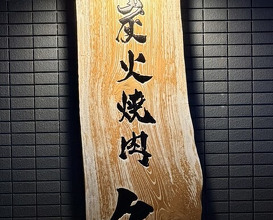 炭火焼肉